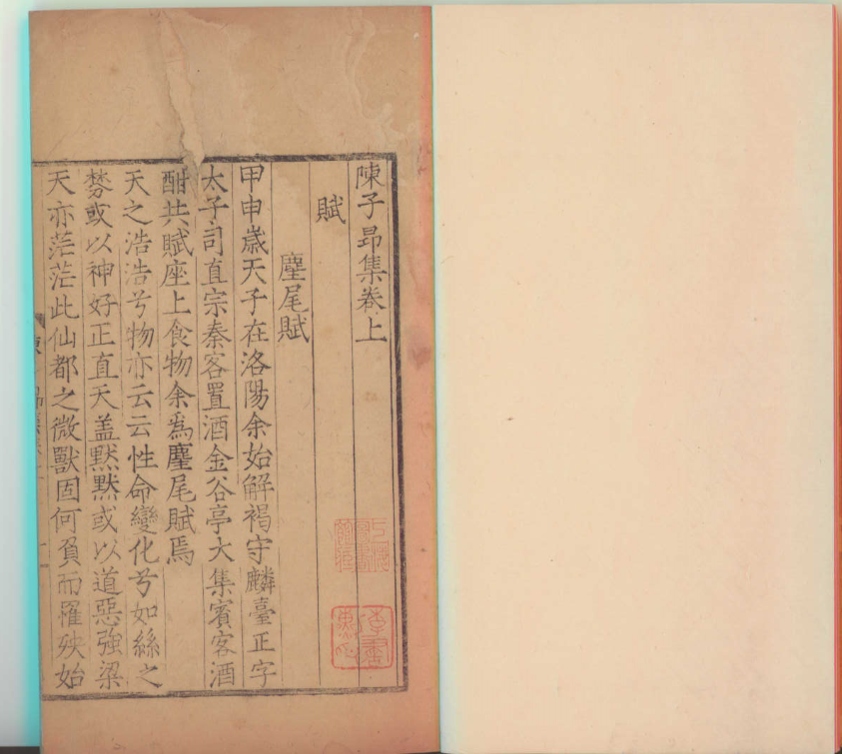 陳子昻集卷上
賦
麈尾賦
甲申歲天子在洛陽余始解褐守麟臺正字
太子司直宗秦客置酒金谷亭大集賓客酒
酣共賦座上食物余為麈尾賦焉
天之浩浩兮物亦云云性命變化兮如絲之
棼或以神好正直天盖黙黙或以道惡強梁
天亦茫茫此仙都之微獸固何負而罹殃始